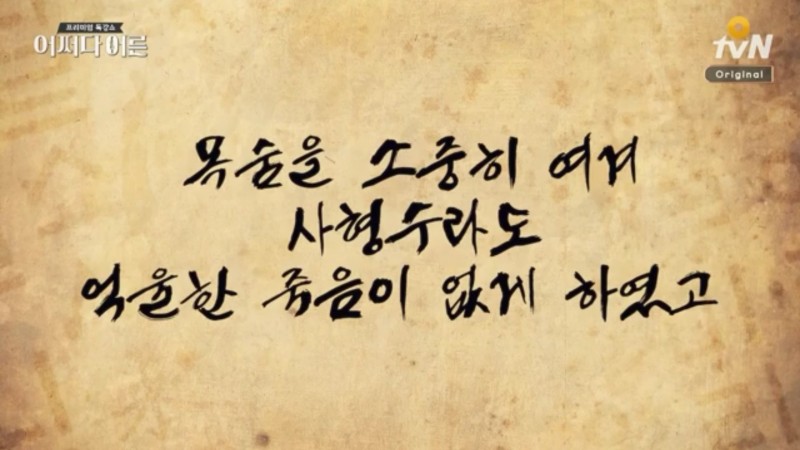 프리미엄 특강쇼
어쩌다 어른
tvN
Original
목숨을 소중히 여겨
사형수라도
억울한 죽음이 없게 하였고